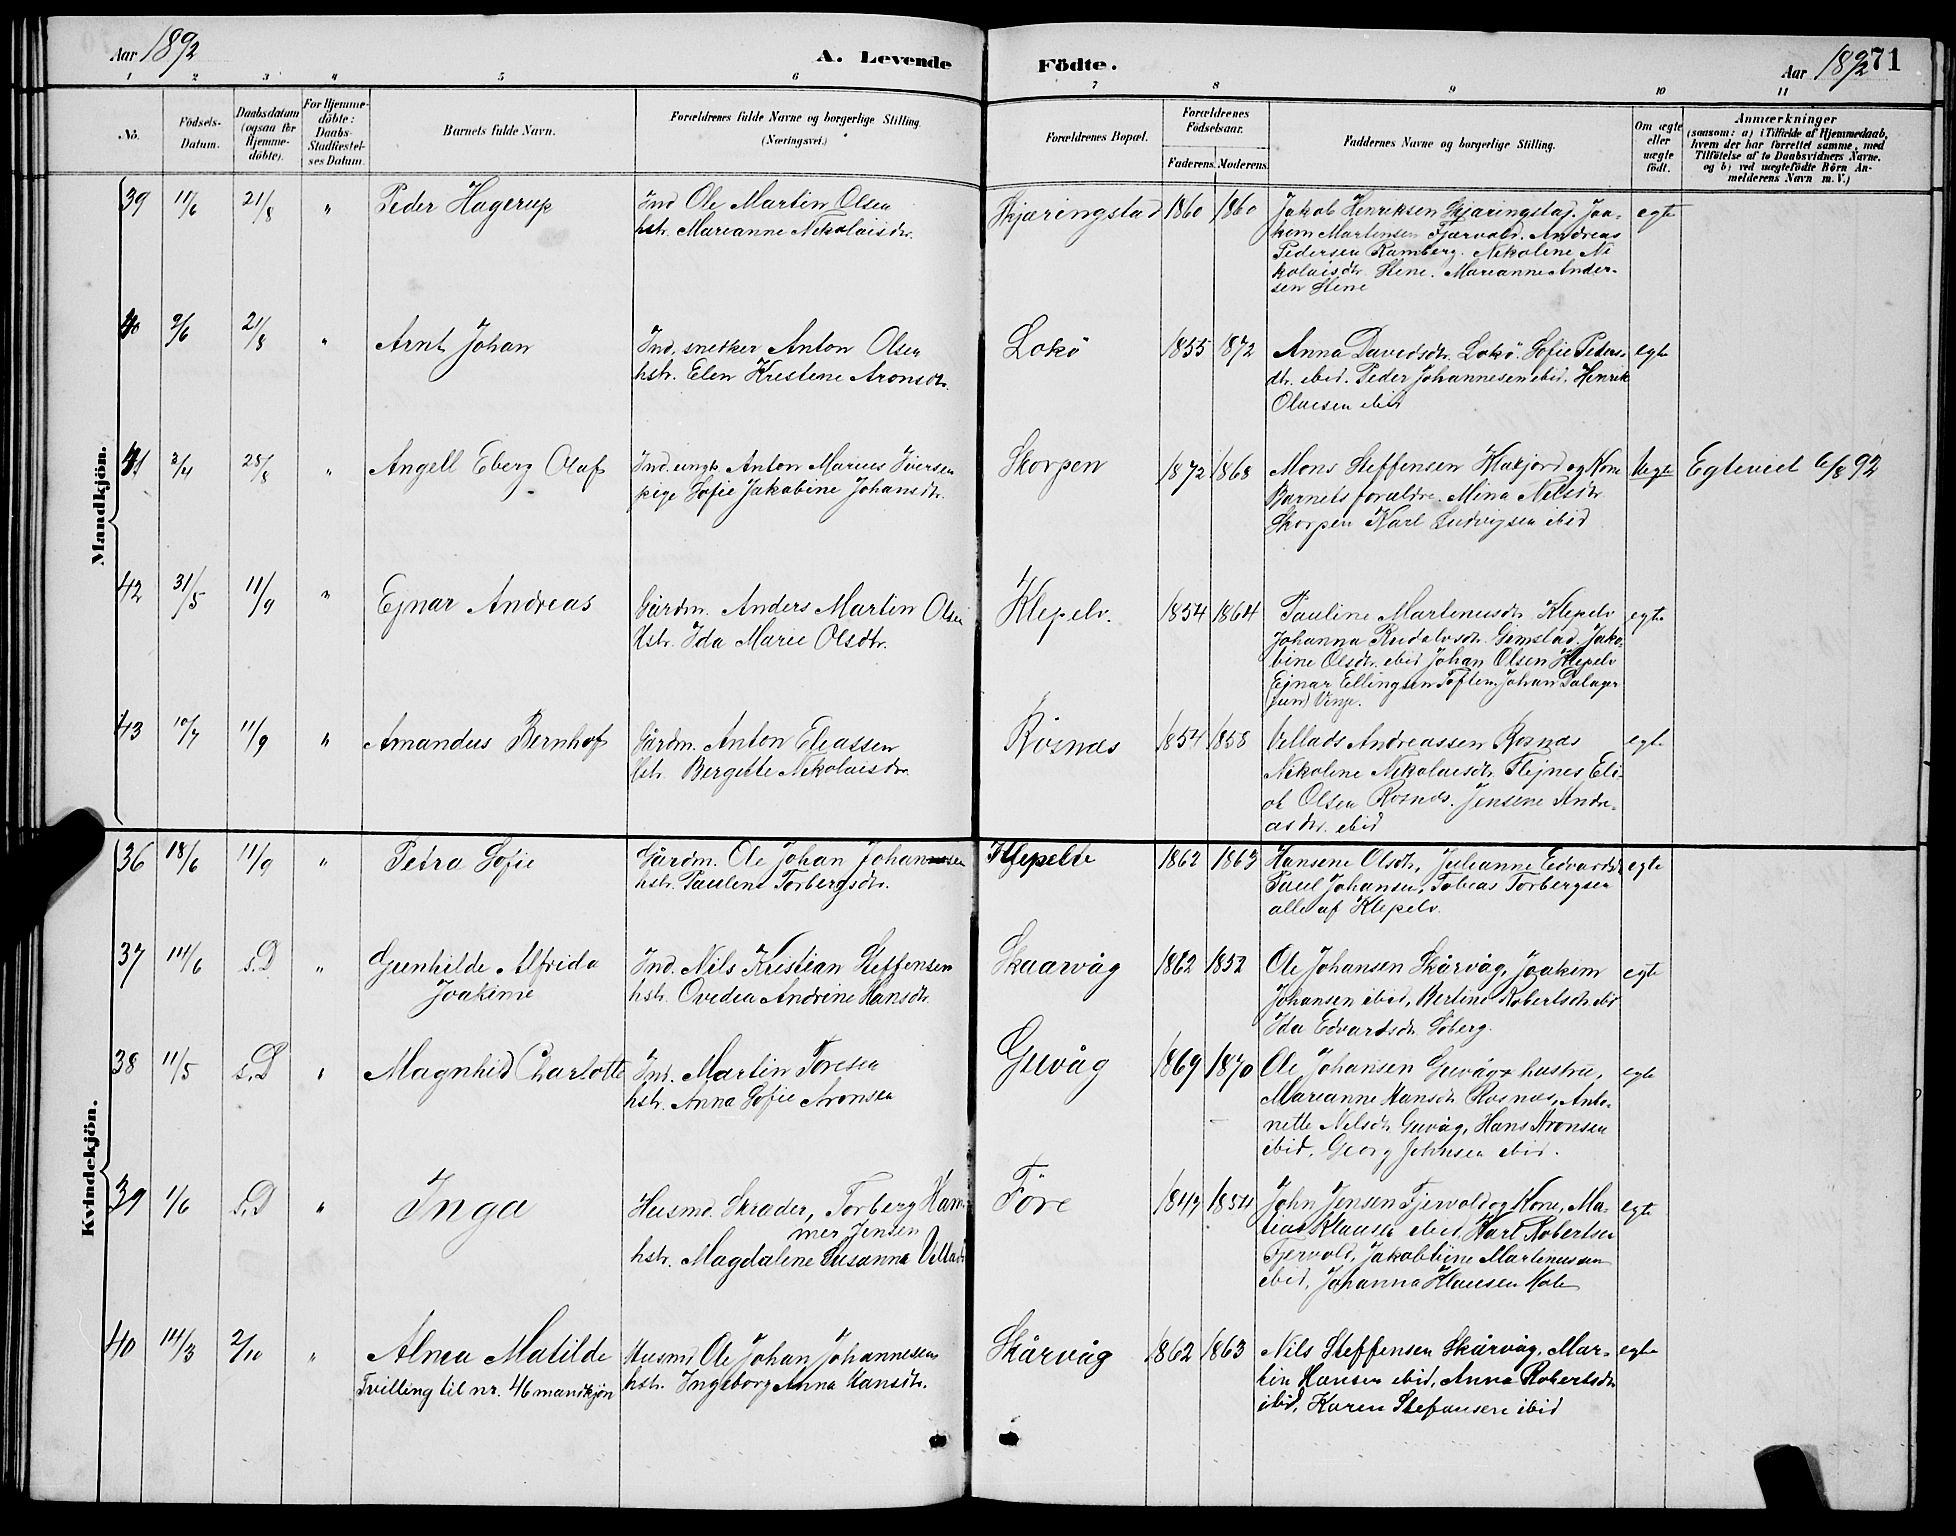 Aar 1892
A. Levende Födte.
Aar 1892 71
1 2 3 4 5 6 7 8 9 10 11
No.
Födsels-Datum.
Daabsdatum (ogsaa for Hjemmedöbte).
For Hjemmedöbte: Daabs-Stadfæstelses Datum.
Barnets fulde Navn.
Forældrenes fulde Navne og borgerlige Stilling.
(Næringsvei.)
Forældrenes Bopæl.
Forældrenes Födselsaar.
Faderens. Moderens.
Faddernes Navne og borgerlige Stilling.
Om ægte eller uægte födt.
Anmærkninger
(saasom: a) i Tilfælde af Hjemmedaab, hvem der har forrettet samme, med Tilföielse af to Daabsvidners Navne, og b) ved uægtefödte Börn Anmelderens Navn m. V.)
Mandkjön.
39 11/6 21/8 " Peder Hagerup
Ind Ole Martin Olsen
hstr. Marianne Nikolaisdtr.
Skjæringstad 1860 1860
Jakob Henriksen Skjæringstad. Joa-
kim Martensen Fjærvold. Andreas
Pedersen Ramberg. Nikoline Ni
kolaisdtr. Stene. Marianne Ander-
sen Stene
egte
40 9/6 21/8 " Arnt Johan
Ind, snedker Anton Olsen
hstr. Elen Kristine Aronsdtr.
Lokö 1855 1872
Anna Davidsdtr. Lokö. Sofie Peders-
dtr. ibid. Peder Johannesen ibid. Henrik
Olaisen ibid
egte
41 3/4 28/8 " Angell Eberg Olaf
Ind. ungk Anton Marius Iversen
pige Sofie Jakobine Johansdtr.
Skorpen 1872 1868
Mons Steffensen Klakjord og Kone
Barnets forældre. Mina Nilsdtr
Skorpen Karl Ludvigsen ibid
uegte Egteviet 6/8 92
42 31/5 11/9 " Ejnar Andreas
Gårdm. Anders Martin Olsen
Hstr. Ida Marie Olsdtr.
Klepelv. 1854 1864
Pauline Martinusdtr. Klepelv
Johanna Rudolvsdtr. Gimstad. Jako-
bine Olsdtr. ibid Johan Olsen Klepelv
Ejnar Ellingsen Toften. Johan Dalager
Vinje.
egte
43 10/7 11/9 " Amandus Bernhof
Gårdm. Anton Eliassen
Hstr. Bergitte Nikolaisdtr.
Rösnæs 1854 1858
Villads Andreassen Rosnæs
Nikoline Nikolaisdtr. Flejnes Eli-
as Olsen Rosnæs. Jensine Andre-
asdtr. ibid
egte
Kvindekjön.
36 18/6 11/9 " Petra Sofie
Gårdm. Ole Johan Johansen
hstr. Pauline Torbergsdtr.
Klepelv 1862 1863
Hansine Olsdtr, Julianne Edvardsdtr
Paul Johansen, Tobias Torbergsen
alle af Klepelv.
egte
37 14/6 s.D " Gunhilde Alfrida
Joakime
Ind. Nils Kristian Steffensen
hstr. Ovedia Andrine Hansdtr.
Skaarvåg 1862 1852
Ole Johansen Skårvåg, Joakim
Johansen ibid, Bertine Robertsdtr ibid
Ida Edvardsdtr Soberg.
egte
38 11/5 s.D " Magnhild Charlotte
Ind. Martin Toresen
hstr. Anna Sofie Aronsen
Guvåg 1869 1870
Ole Johansen Guvåg & hustru,
Marianne Hansdtr Rosnæs, Anto-
nette Nilsdtr Guvåg, Hans Aronsen
ibid, Georg Johnsen ibid.
egte
39 1/6 s.D " Inga
Husmd. Skræder, Torberg Ham-
mer Jensen
hstr. Magdalene Susanna Villads
Före 1847 1854
John Jensen Fjervold og Kone, Ma-
tias Klausen ibid, Karl Robertsen
Fjervold, Jakobbine Martinussen
ibid, Johanna Klausen Hole
egte
40 14/3 2/10 " Alma Matilde
Tvilling til nr. 46 mandkjön
Husmd Ole Johan Johannesen
hstr. Ingeborg Anna Hansdtr.
Skårvåg 1862 1863
Nils Steffensen Skårvåg, Mar-
tin Hansen ibid, Anna Robertsdtr
ibid, Karen Stefansen ibid
egte